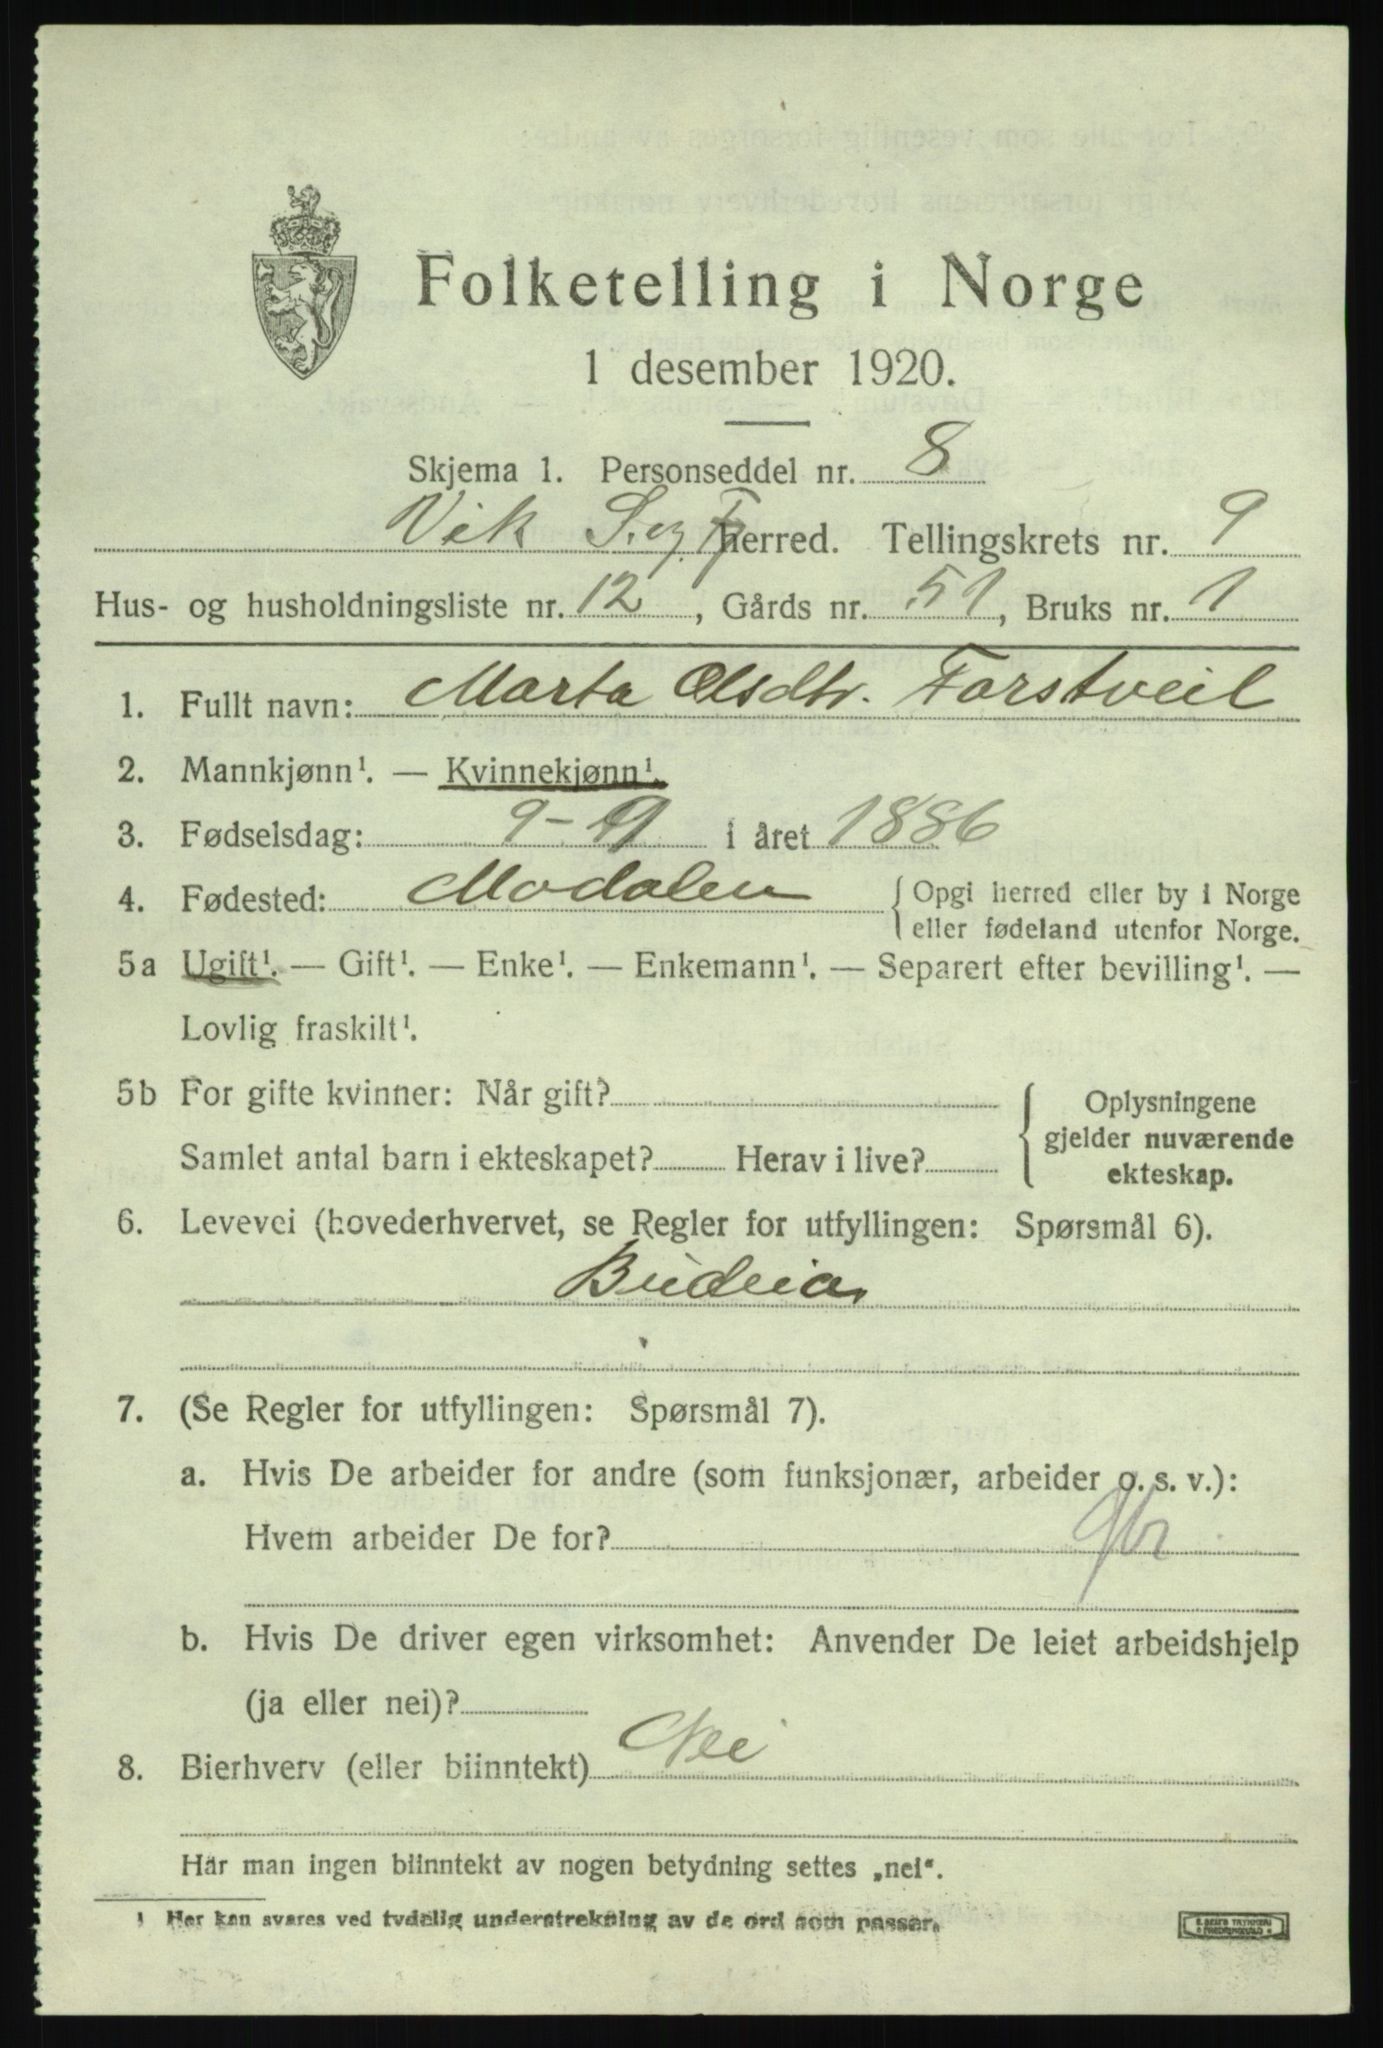 Folketelling i Norge
1 desember 1920.
Skjema 1. Personseddel nr. 8
Vik S. og Fj. herred. Tellingskrets nr. 9
Hus- og husholdningsliste nr. 12, Gårds nr. 51, Bruks nr. 1
1. Fullt navn: Marta Olsdtr. Farstveil
2. Mannkjønn¹. — Kvinnekjønn¹.
3. Fødselsdag: 9-9 i året 1886
4. Fødested: Modalen { Opgi herred eller by i Norge
eller fødeland utenfor Norge.
5a Ugift¹. — Gift¹. — Enke¹. — Enkemann¹. — Separert efter bevilling¹. —
Lovlig fraskilt¹.
5b For gifte kvinner: Når gift?
Samlet antal barn i ekteskapet? Herav i live?
{ Oplysningene
gjelder nuværende
ekteskap.
6. Levevei (hovederhvervet, se Regler for utfyllingen: Spørsmål 6).
Budeia
7. (Se Regler for utfyllingen: Spørsmål 7).
a. Hvis De arbeider for andre (som funksjonær, arbeider o. s. v.):
Hvem arbeider De for?
b. Hvis De driver egen virksomhet: Anvender De leiet arbeidshjelp
(ja eller nei)?
8. Bierhverv (eller biinntekt) Nei
Har man ingen biinntekt av nogen betydning settes „nei“.
¹ Her kan svares ved tydelig understrekning av de ord som passer.